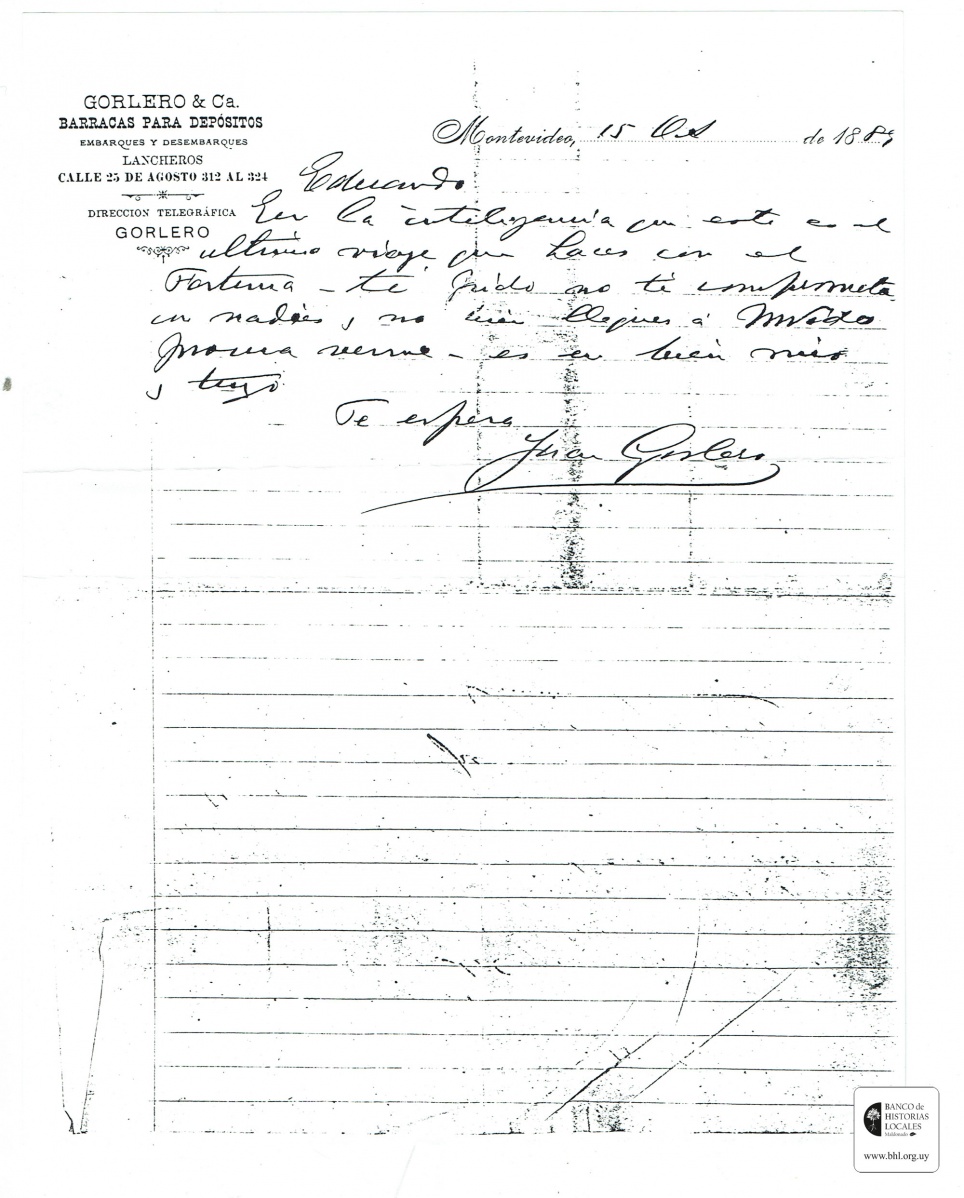 GORLERO & Ca.
BARRACAS PARA DEPÓSITOS
EMBARQUES Y DESEMBARQUES
LANCHEROS
CALLE 25 DE AGOSTO 312 AL 324
DIRECCION TELEGRÁFICA
GORLERO
Montevideo, 15 Oct de 1889
Eduardo
En la inteligencia que este es el
ultimo viaje que haces con el
Fortuna - te pido no te comprometa
con nadies y no bien llegues á Mvdeo
procura verme - es en bien mio
y tuyo
Te espera
Juan Gorlero
BANCO de
HISTORIAS
LOCALES
Maldonado
www.bhl.org.uy